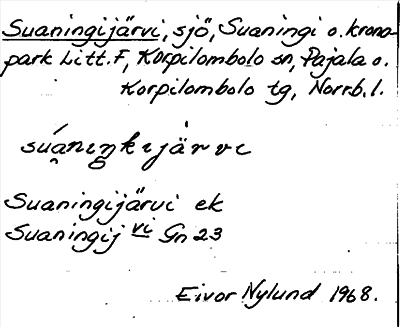 Suaningijärvi, sjö, Suaningi o. krono-
park Litt. F, Korpilombolo sn, Pajala o.
Korpilombolo tg, Norrb. l.
Suaningijärvi ek
Suaningij vi Gn 23
Eivor Nylund 1968.